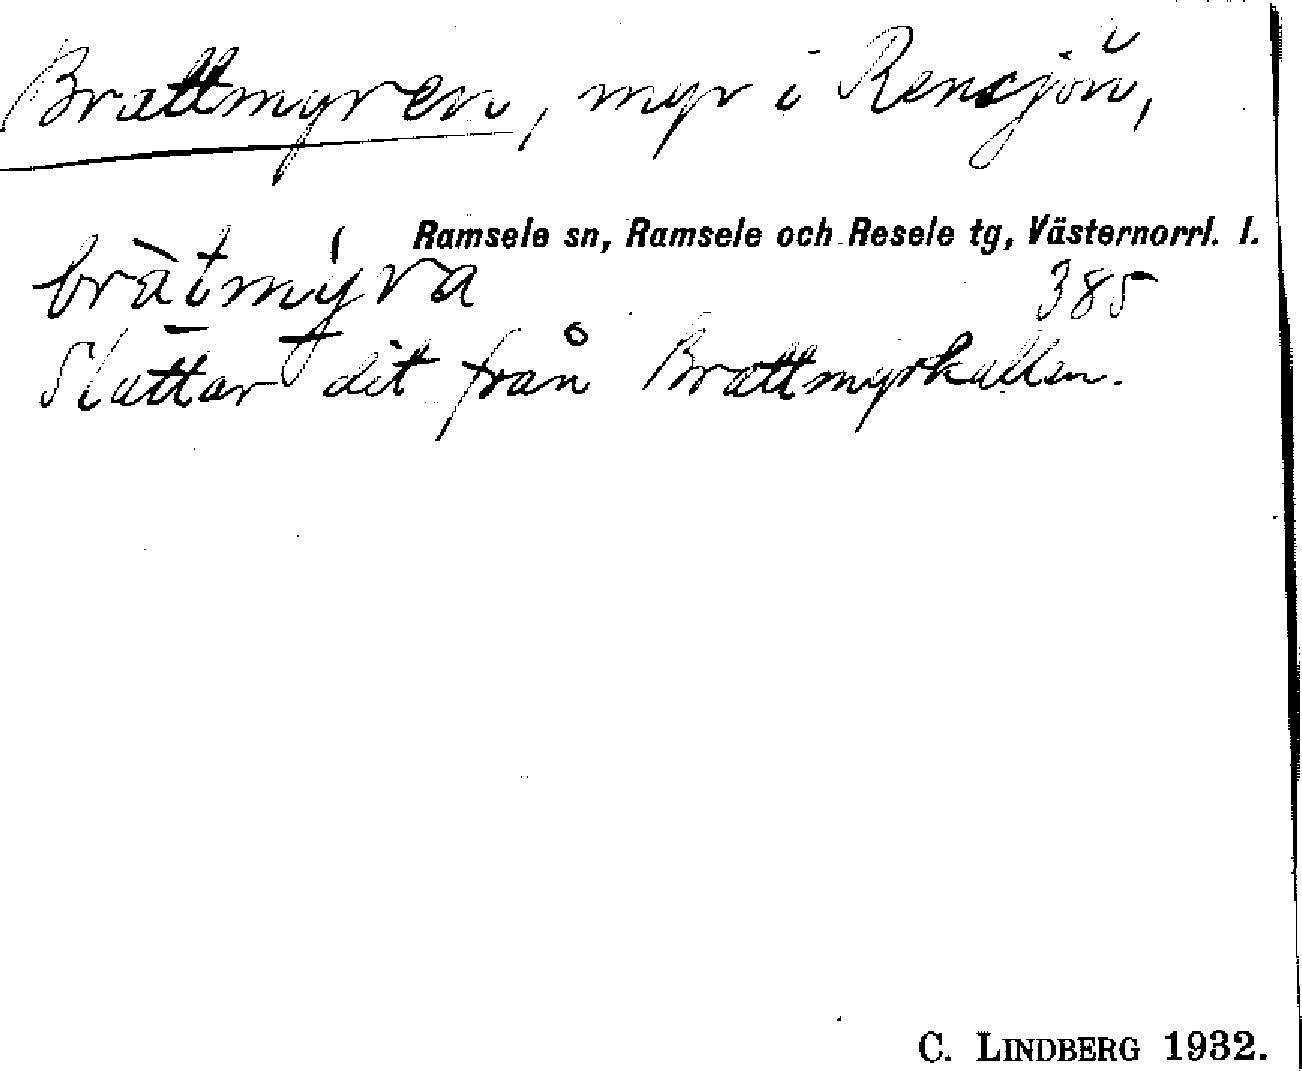 Brattmyren, myr i Rensjön,
Ramsele sn, Ramsele och Resele tg, Västernorrl. l.
bràtmýra 385
Sluttar dit från Brattmyrkällen.
C. LINDBERG 1932.